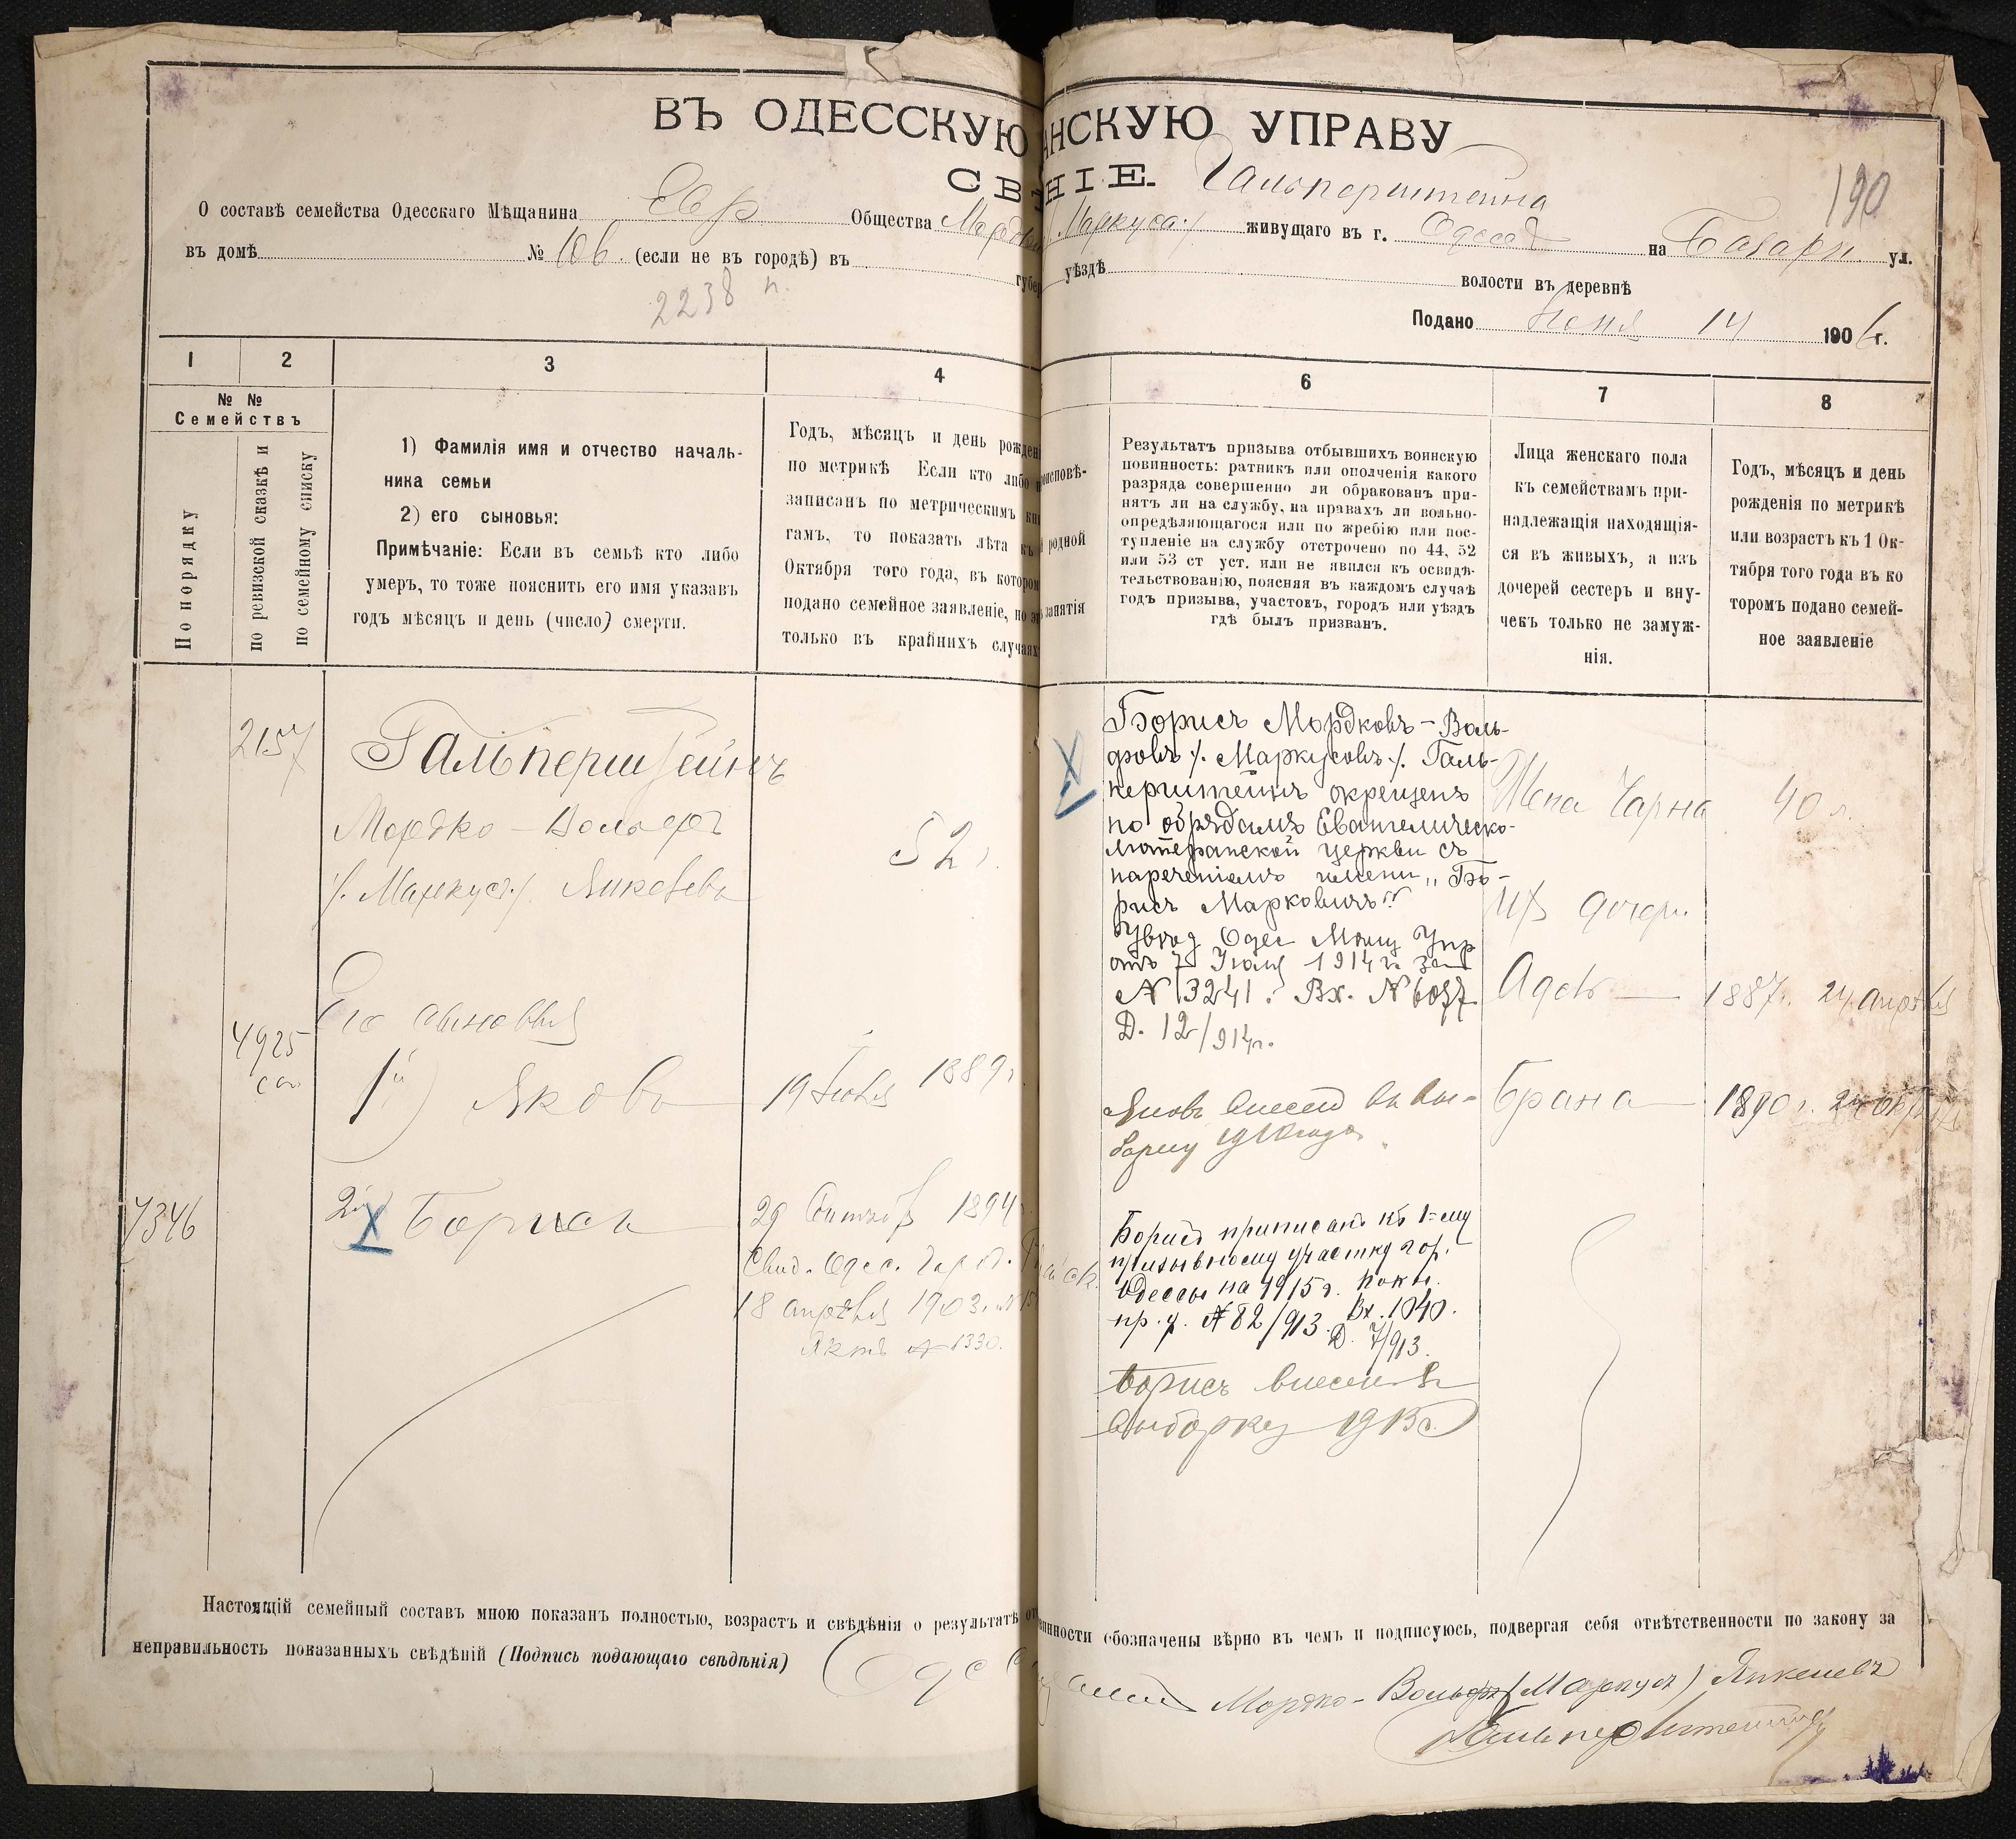 ВЪ ОДЕССКУЮ АНСКУЮ УПРАВУ
СВѢ НІЕ.
Гальперштейна
190
О составѣ семейства Одесскаго Мѣщанина Евр Общества Мордк Маркуса живущаго въ г. Одессѣ на Базарн. ул.
въ домѣ № 106. (если не въ городѣ) въ губер уѣздѣ волости въ деревнѣ
2238
Подано Іюня 14 1906 г.
1 2 3 4 6 7 8
№ №
Семействъ
По порядку
по ревизской сказкѣ и
по семейному списку
1) Фамилія имя и отчество началь-
ника семьи
2) его сыновья:
Примѣчаніе: Если въ семьѣ кто либо
умеръ, то тоже пояснить его имя указавъ
годъ мѣсяцъ и день (число) смерти.
Годъ, мѣсяцъ и день рожден
по метрикѣ Если кто либо н
записанъ по метрическимъ кни
гамъ, то показать лѣта къ
Октября того года, въ котором
подано семейное заявленіе, но эт
только въ крайнихъ случаях
исповѣ-
родной
занятія
Результатъ призыва отбывшихъ воинскую
повинность: ратникъ или ополченія какого
разряда совершенно ли обракованъ при-
нятъ ли на службу, на правахъ ли вольно-
опредѣляющагося или по жребію или пос-
тупленіе на службу отстрочено по 44, 52
или 53 ст уст. или не явился къ освидѣ-
тельствованію, поясняя въ каждомъ случаѣ
годъ призыва, участокъ, городъ или уѣздъ
гдѣ былъ призванъ.
Лица женскаго пола
къ семействамъ при-
надлежащія находящія-
ся въ живыхъ, а изъ
дочерей сестеръ и вну-
чекъ только не замуж-
нія.
Годъ, мѣсяцъ и день
рожденія по метрикѣ
или возрастъ къ 1 Ок-
тября того года въ ко
торомъ подано семей-
ное заявленіе
2157
Гальперштейнъ
Мордко-Вольфъ
/. Маркусъ./ Янкелевъ
52
Его сыновья
4925
1й) Яковъ
19 Іюля 1889
7346
2й Борисъ
29 Сентяб 1894
Свид. Одес. Город.
18 апрѣля 1903. №
Актъ № 1330.
Борисъ Мордковъ-Воль-
фовъ /. Маркусовъ ./. Галь-
перштейнъ окрещенъ
по обрядамъ Евангелическо-
лютеранской церкви съ
нареченіемъ имени „Бо-
рисъ Марковичъ"
Увѣд Одес Мѣщ Упр
отъ 7 Іюля 1914 г. за
№ 3241. Вх. № 6057
Д. 12/914г.
внесенъ въ вы-
борку 1910 года
Борисъ приписанъ къ 1-му
призывному участку гор.
Одессы на 1915 г.
пр. у. № 82/913. Вх. 1040.
Д. 7/913.
Борисъ внесенъ въ
выборку 1915г.
Жена Чарна 40 л.
Их дочери.
Адель 1887 г. 24 апрѣля
Брана 1890 г.
Настоящій семейный составъ мною показанъ полностью, возрастъ и свѣдѣнія о результатѣ от винности обозначены вѣрно въ чемъ и подписуюсь, подвергая себя отвѣтственности по закону за
неправильность показанныхъ свѣдѣній (Подпись подающаго свѣдѣнія)
Мордко-Вольфъ (Маркусъ) Янкелевъ
Гальперштейнъ